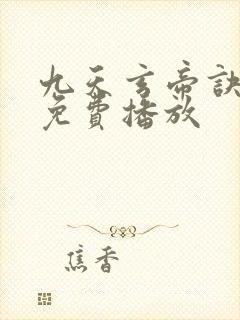 九天玄帝訣
免費播放
焦香